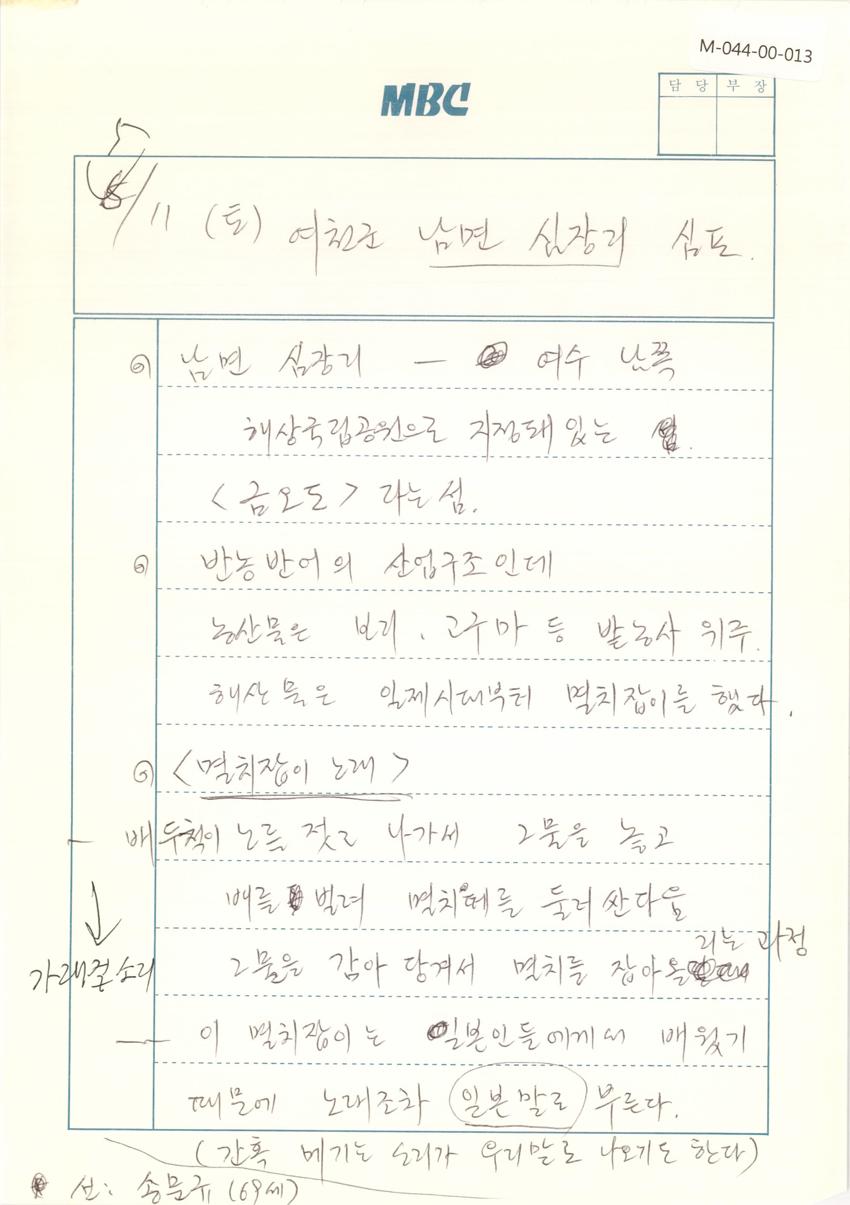 M-044-00-013
MBC
담 당 부 장
5/11 (토) 여천군 남면 심장리 심포.
남면 심장리 — 여수 남쪽
해상국립공원으로 지정돼 있는
<금오도> 라는 섬.
반농반어의 산업구조인데
농산물은 보리, 고구마 등 밭농사 위주.
해산물은 일제시대부터 멸치잡이를 했다.
<멸치잡이 노래>
— 배 두척이 노를 젓고 나가서 그물을 놓고
배를 벌려 멸치떼를 둘러싼다음
가래줄소리
그물은 감아 당겨서 멸치를 잡아올리는 과정
— 이 멸치잡이는 일본인들에게서 배웠기
때문에 노래조차 일본말로 부른다.
(간혹 메기는 소리가 우리말로 나오기도 한다)
선: 송문규 (69세)